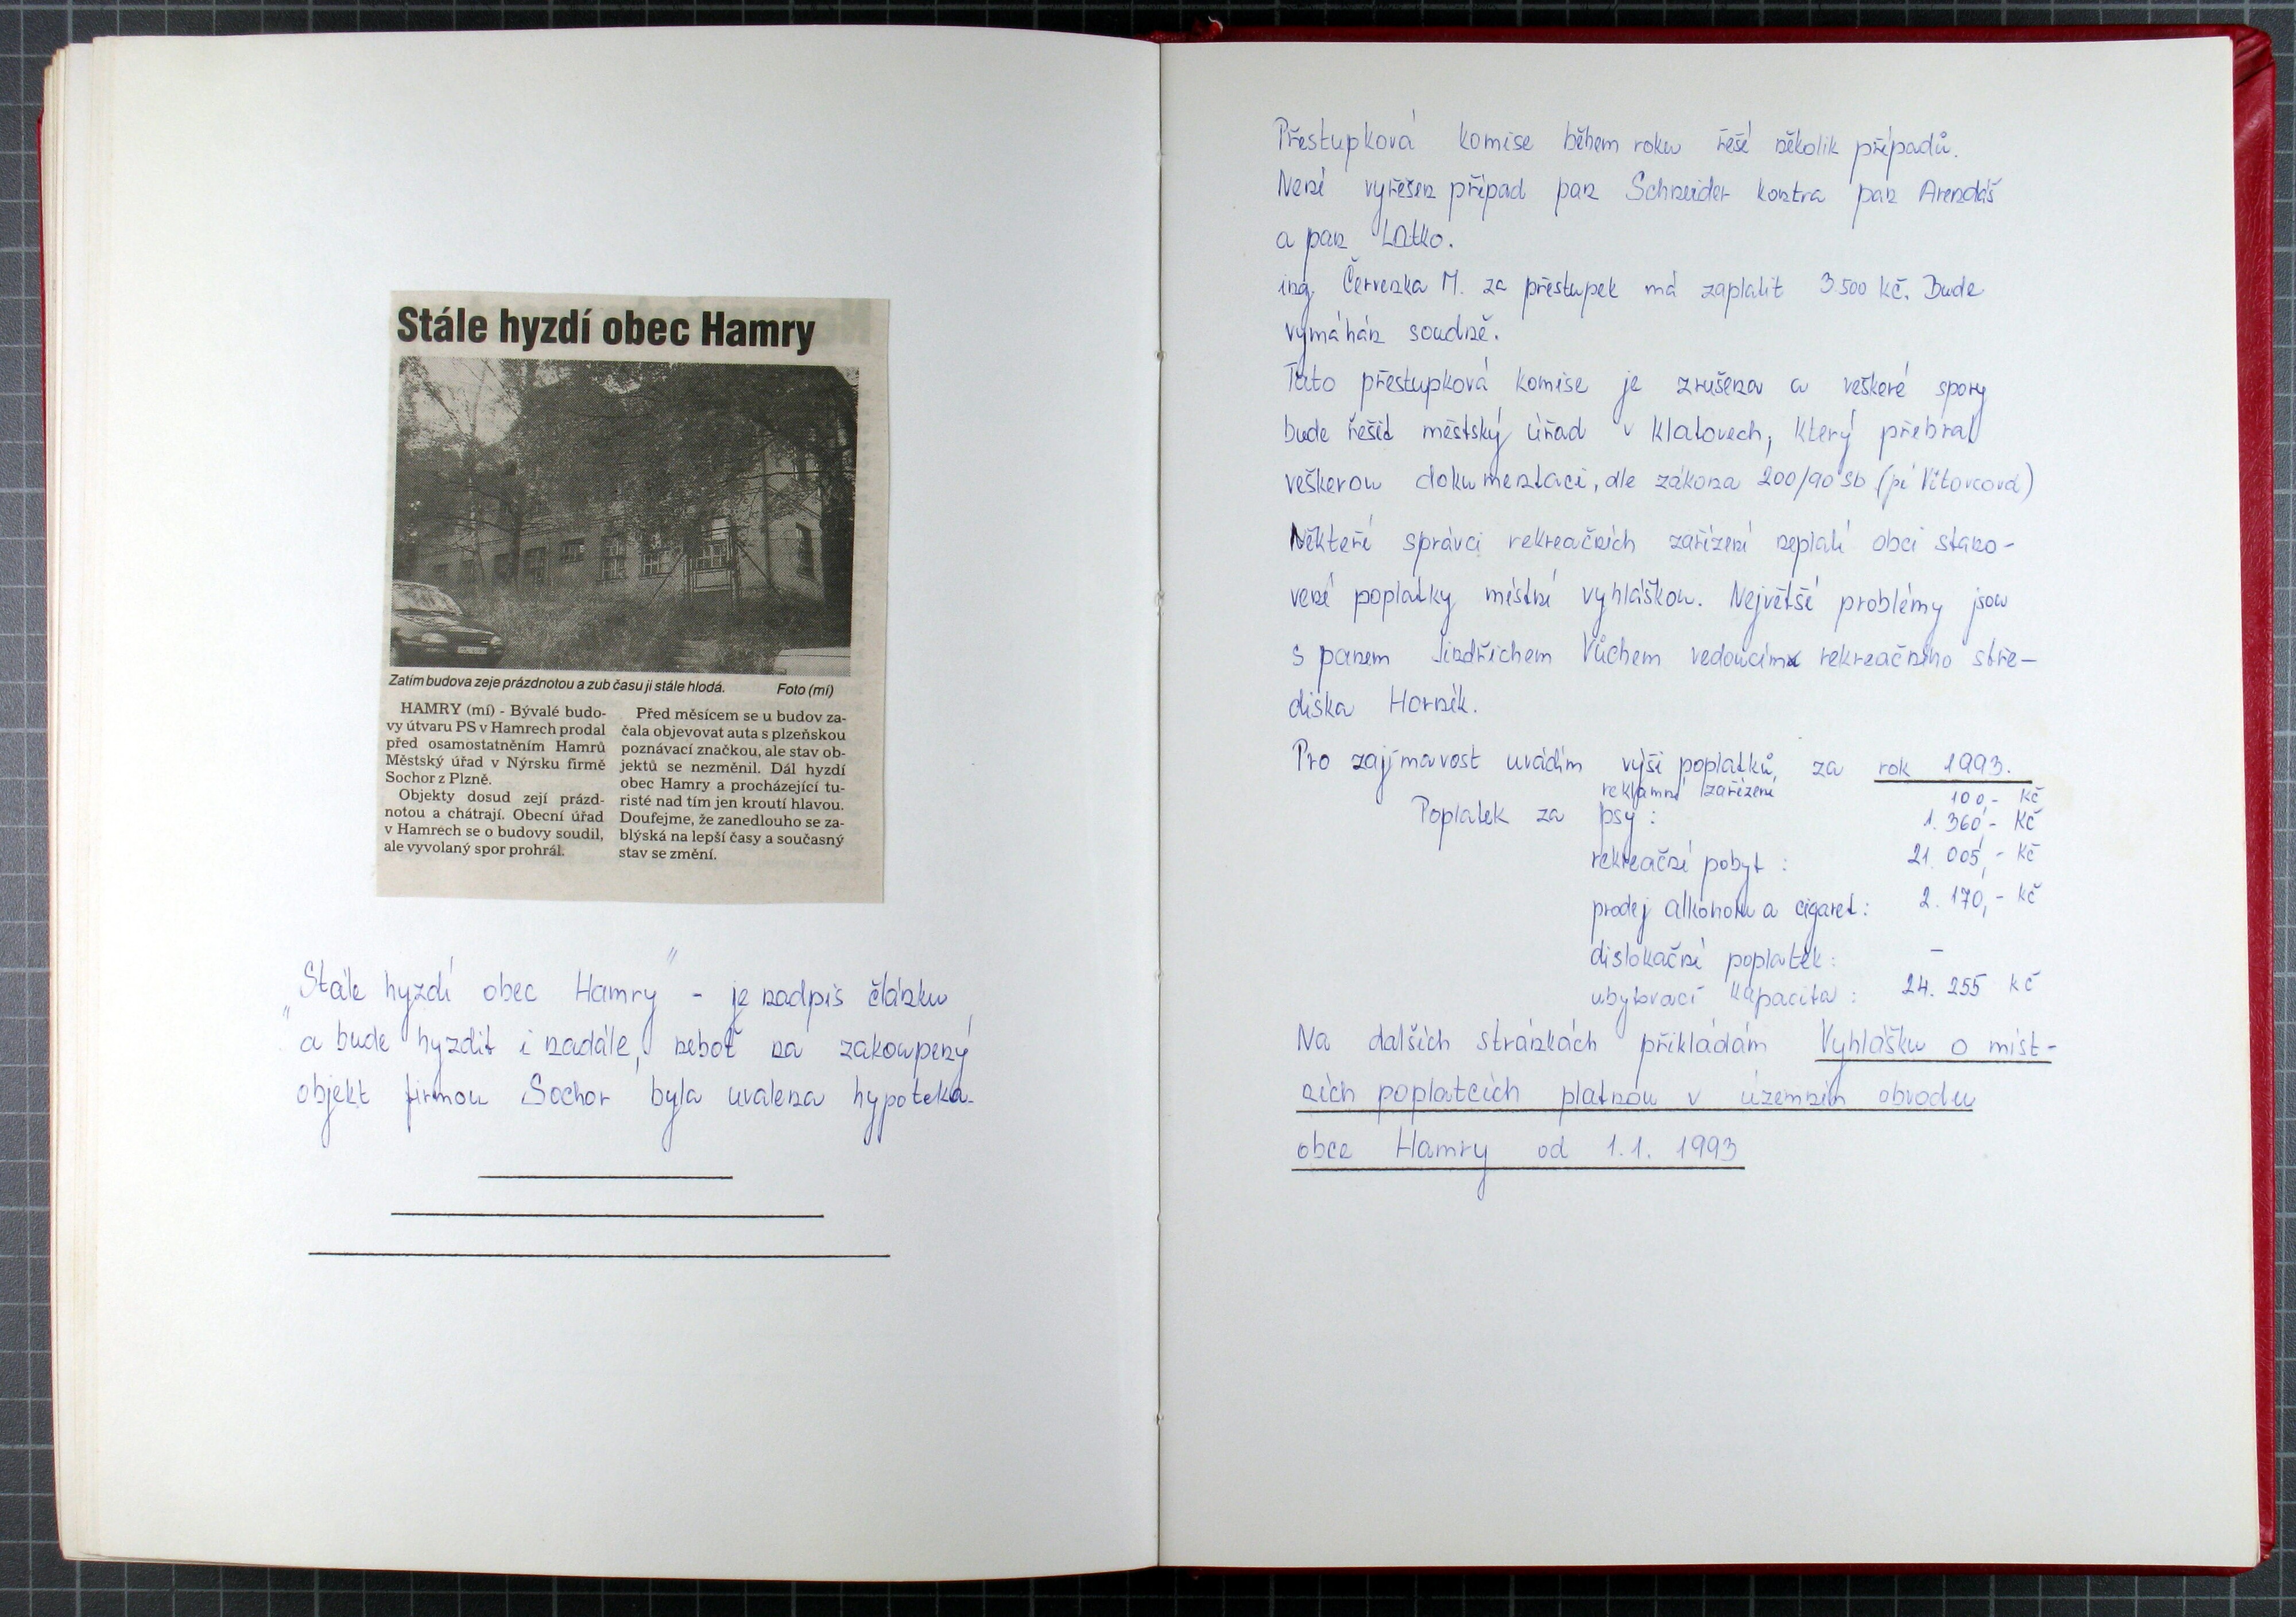 Stále hyzdí obec Hamry
Zatím budova zeje prázdnotou a zub času ji stále hlodá. Foto (mí)
HAMRY (mí) - Bývalé budo-
vy útvaru PS v Hamrech prodal
před osamostatněním Hamrů
Městský úřad v Nýrsku firmě
Sochor z Plzně.
Objekty dosud zejí prázd-
notou a chátrají. Obecní úřad
v Hamrech se o budovy soudil,
ale vyvolaný spor prohrál.
Před měsícem se u budov za-
čala objevovat auta s plzeňskou
poznávací značkou, ale stav ob-
jektů se nezměnil. Dál hyzdí
obec Hamry a procházející tu-
risté nad tím jen kroutí hlavou.
Doufejme, že zanedlouho se za-
blýská na lepší časy a současný
stav se změní.
„Stále hyzdí obec Hamry" - je nadpis článku
a bude hyzdit i nadále, neboť na zakoupený
objekt firmou Sochor byla uvalena hypotéka.
Přestupková komise během roku řeší několik případů.
Není vyřešen případ pan Schneider kontra pan Arendáš
a pan Latko.
ing. Červenka M. za přestupek má zaplatit 3.500 kč. Bude
vymáhán soudně.
Tato přestupková komise je zrušena a veškeré spory
bude řešit městský úřad v Klatovech, který přebral
veškerou dokumentaci, dle zákona 200/90 Sb (pí Vítovcová)
Někteří správci rekreačních zařízení neplatí obci stano-
vené poplatky místní vyhláškou. Největší problémy jsou
s panem Jindřichem Vůchem vedoucím rekreačního stře-
diska Horník.
Pro zajímavost uvádím výši poplatků za rok 1993.
reklamní zařízení 100,- Kč
Poplatek za psy: 1.360,- Kč
rekreační pobyt: 21.005,- Kč
prodej alkoholu a cigaret: 2.170,- Kč
dislokační poplatek: -
ubytovací kapacita: 24.255 Kč
Na dalších stránkách přikládám Vyhlášku o míst-
ních poplatcích platnou v územním obvodu
obce Hamry od 1.1. 1993